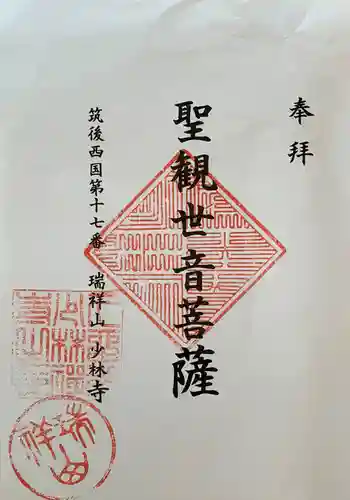 奉拝
聖観世音菩薩
筑後西国第十七番 瑞祥山 少林寺
瑞祥山